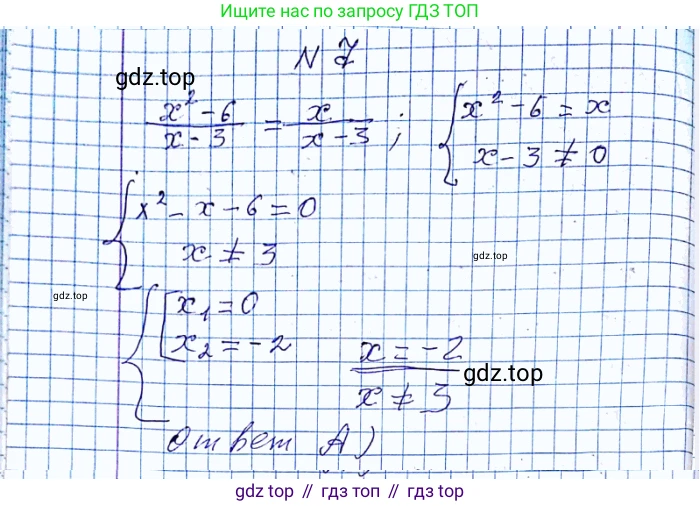 Ищите нас по запросу ГДЗ ТОП
N 7
gdz.top
x² - 6 / x - 3 = x / x - 3 ; { x² - 6 = x
x - 3 ≠ 0
{ x² - x - 6 = 0
x ≠ 3
gdz.top
gdz.top
{ [ x₁ = 0
x₂ = -2
x = -2
gdz.top
x ≠ 3
ответ А)
gdz top // гдз топ // gdz.top